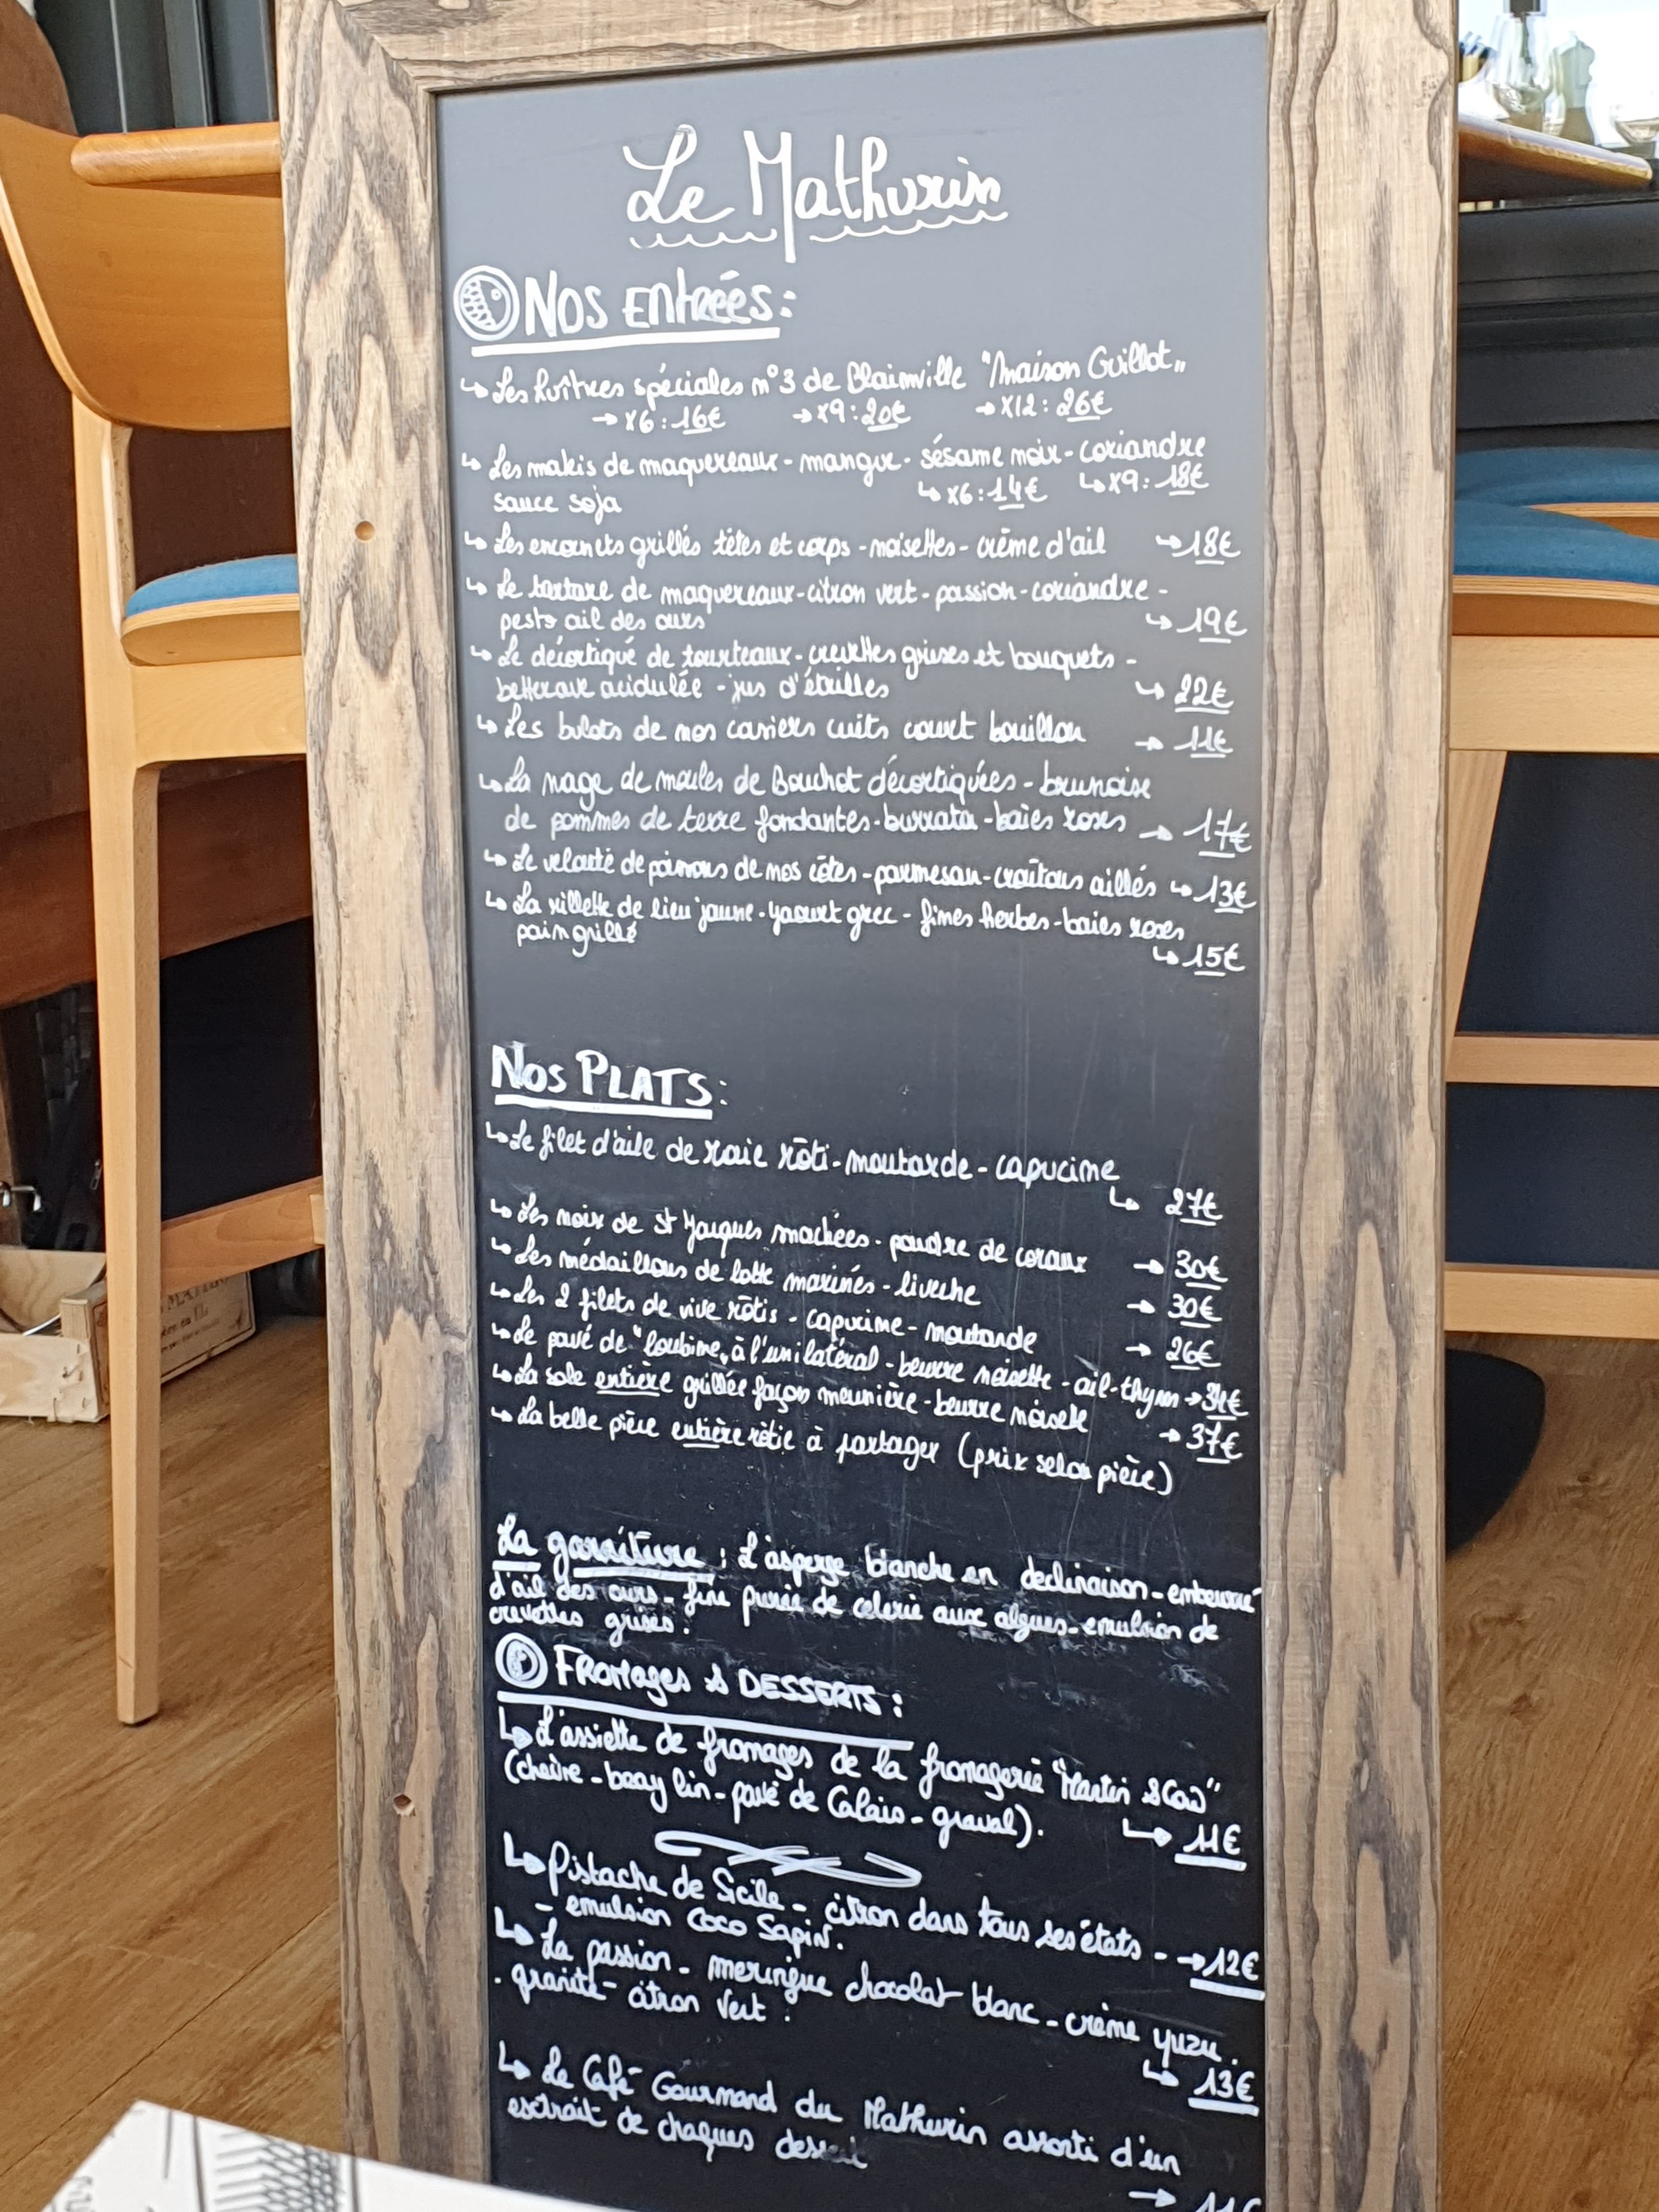 Le Mathurin
Nos Entrées:
↳ Les huîtres spéciales n°3 de Blainville "Maison Guillot"
→ x6: 16€ → x9: 20€ → x12: 26€
↳ Les makis de maquereaux - mangue - sésame noir - coriandre
sauce soja ↳ x6: 14€ ↳ x9: 18€
↳ Les encornets grillés têtes et corps - noisettes - crème d'ail → 18€
↳ Le tartare de maquereaux - citron vert - passion - coriandre -
pesto ail des ours ↳ 19€
↳ Le décortiqué de tourteaux - crevettes grises et bouquets -
betterave acidulée - jus d'étrilles ↳ 22€
↳ Les bulots de nos casiers cuits court bouillon → 11€
↳ La nage de moules de Bouchot décortiquées - brunoise
de pommes de terre fondantes - burrata - baies roses → 17€
↳ Le velouté de poissons de nos côtes - parmesan - croûtons aillés ↳ 13€
↳ La rillette de lieu jaune - yaourt grec - fines herbes - baies roses
pain grillé ↳ 15€
Nos PLATS:
↳ Le filet d'aile de raie rôti - moutarde - capucine
↳ 27€
↳ Les noix de St Jacques snackées - poudre de coraux → 30€
↳ Les médaillons de lotte marinés - livèche → 30€
↳ Les 2 filets de vive rôtis - capucine - moutarde → 26€
↳ Le pavé de "loubine" à l'unilatéral - beurre noisette - ail - thym → 34€
↳ La sole entière grillée façon meunière - beurre noisette → 37€
↳ La belle pièce entière rôtie à partager (prix selon pièce)
La garniture : L'asperge blanche en declinaison - embeurré
d'ail des ours - fine purée de celerie aux algues - emulsion de
crevettes grises.
Fromages & DESSERTS:
↳ L'assiette de fromages de la fromagerie "Martin &
(chèvre - bray lin - pavé de Calais - graval). ↳ 11€
↳ Pistache de Sicile - citron dans tous ses états - → 12€
- emulsion coco Sapin.
↳ La passion - meringue chocolat blanc - crème yuzu.
. granité - citron vert. ↳ 13€
↳ Le Café Gourmand du Mathurin assorti d'un
extrait de chaques dessert
→